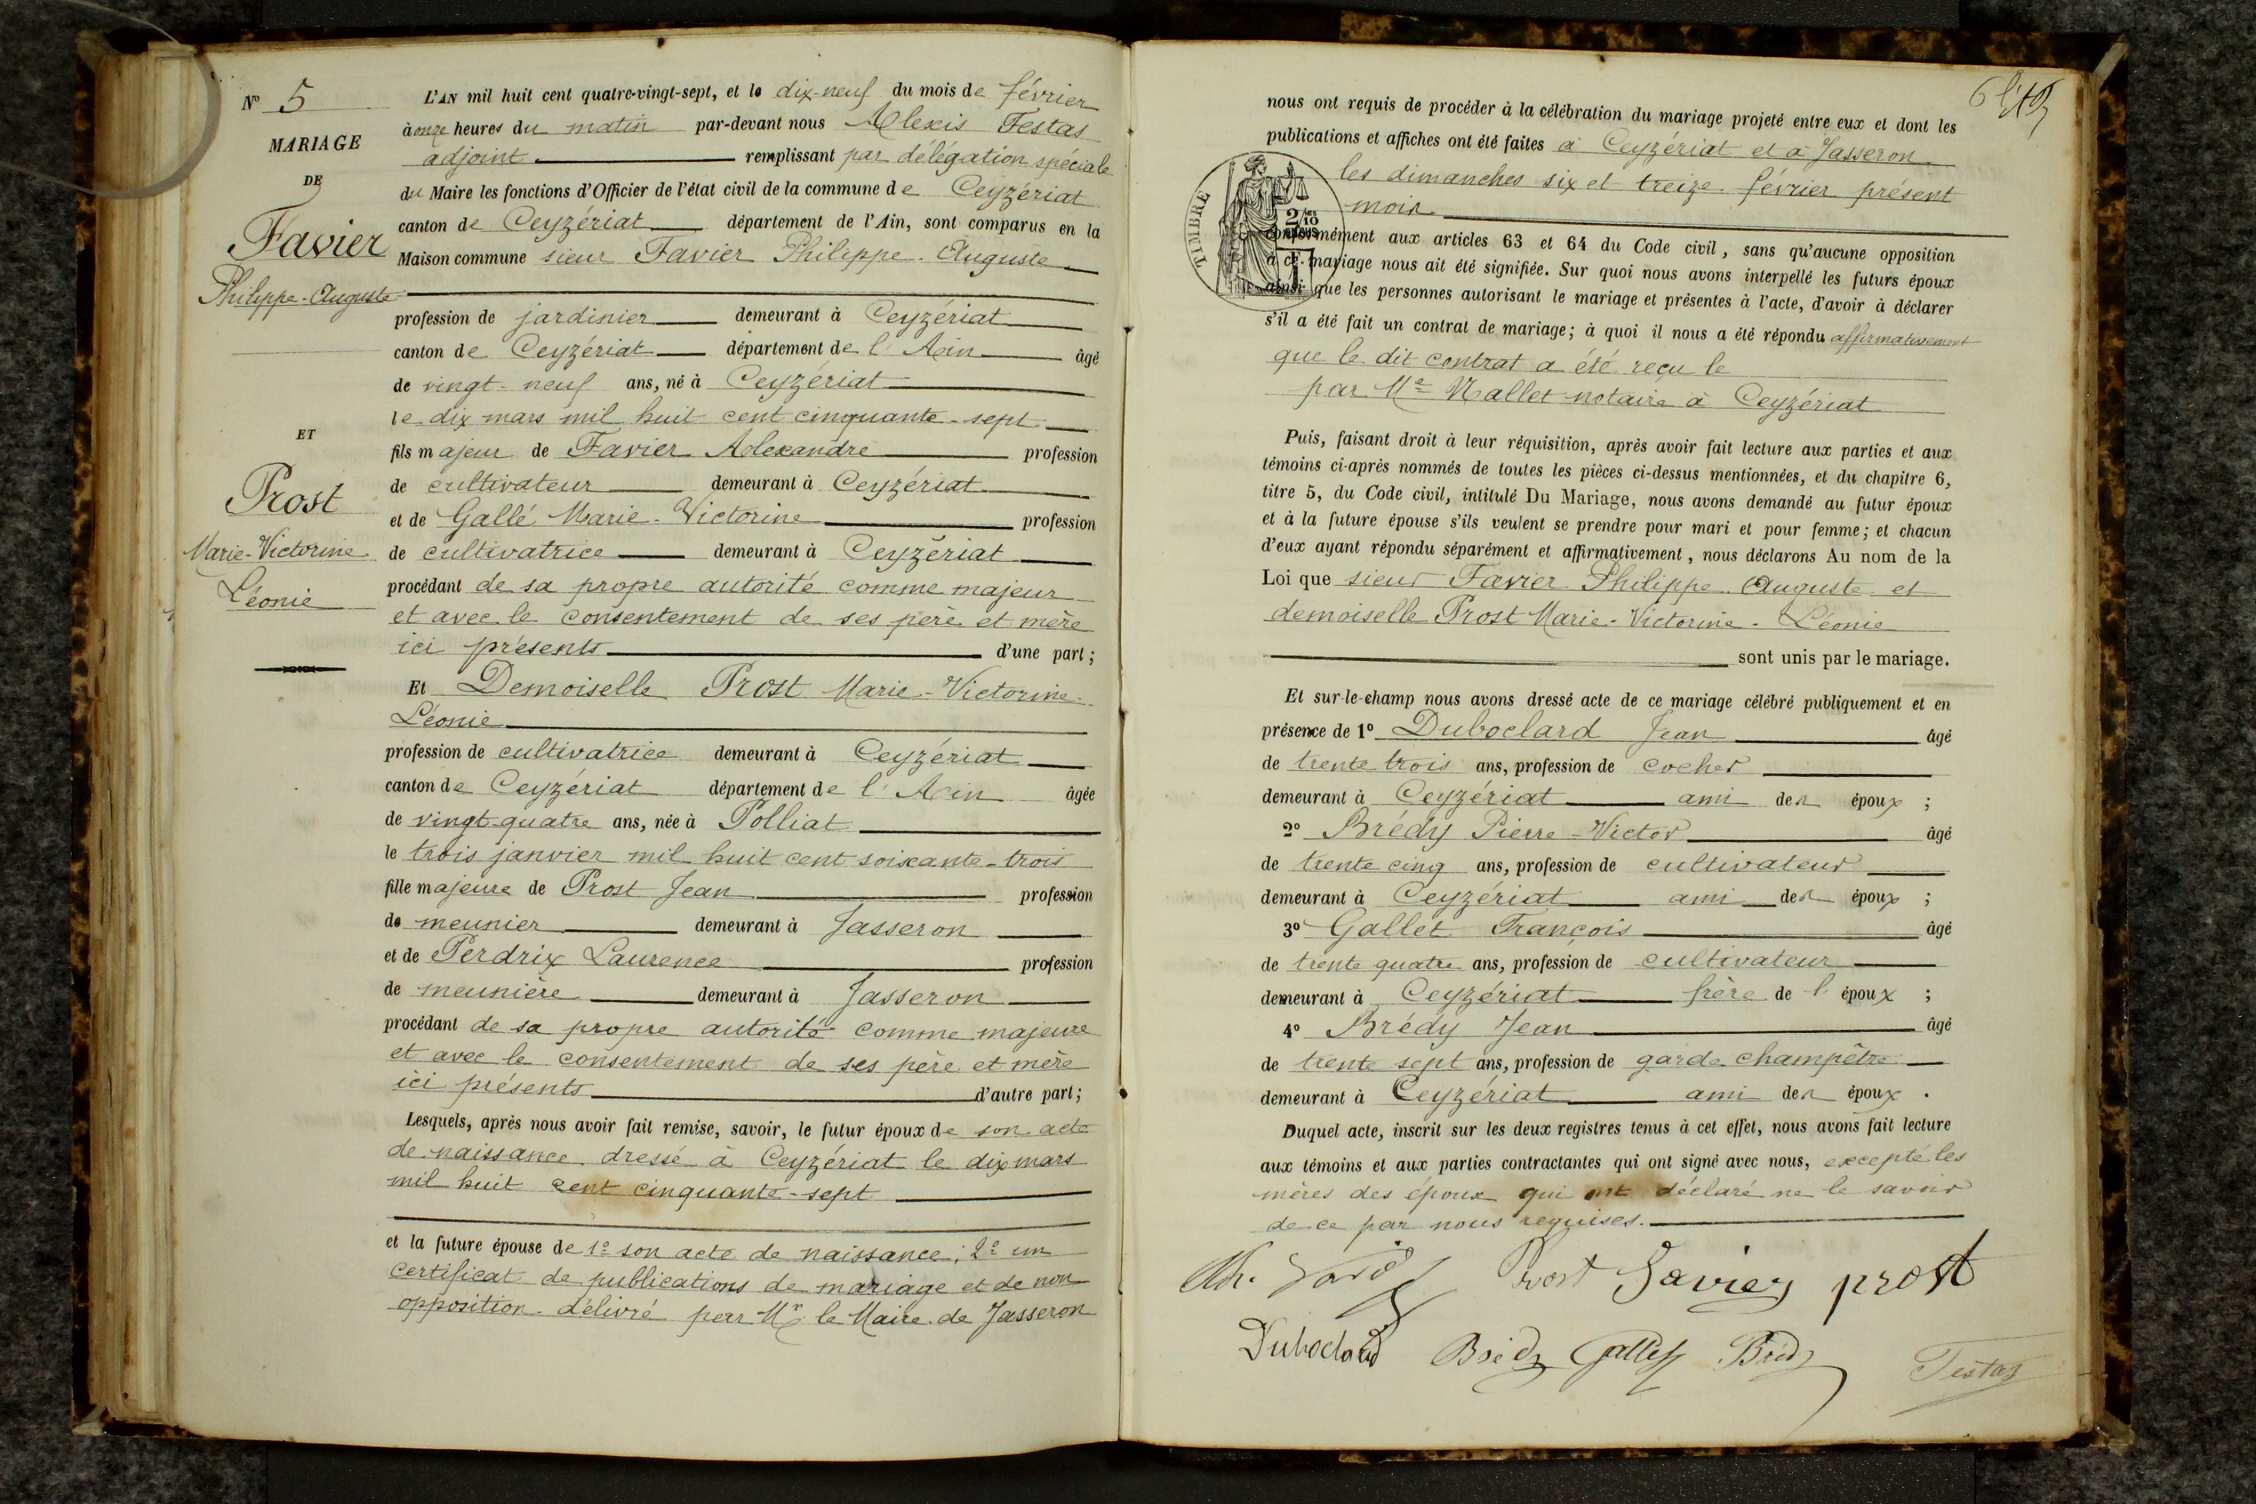 N° 5
MARIAGE
DE
Favier
Philippe-Auguste
ET
Prost
Marie-Victorine
Léonie
L'AN mil huit cent quatre-vingt-sept, et le dix-neuf du mois de février
à onze heures du matin par-devant nous Alexis Testas
adjoint remplissant par délégation spéciale
du Maire les fonctions d'Officier de l'état civil de la commune de Ceyzériat
canton de Ceyzériat département de l'Ain, sont comparus en la
Maison commune sieur Favier Philippe-Auguste
profession de jardinier demeurant à Ceyzériat
canton de Ceyzériat département de l'Ain âgé
de vingt-neuf ans, né à Ceyzériat
le dix mars mil huit cent cinquante-sept
fils majeur de Favier Alexandre profession
de cultivateur demeurant à Ceyzériat
et de Gallé Marie-Victorine profession
de cultivatrice demeurant à Ceyzériat
procédant de sa propre autorité comme majeur
et avec le consentement de ses père et mère
ici présents d'une part;
Et Demoiselle Prost Marie-Victorine-
Léonie
profession de cultivatrice demeurant à Ceyzériat
canton de Ceyzériat département de l'Ain âgée
de vingt-quatre ans, née à Polliat
le trois janvier mil huit cent soixante-trois
fille majeure de Prost Jean profession
de meunier demeurant à Jasseron
et de Perdrix Laurence profession
de meunière demeurant à Jasseron
procédant de sa propre autorité comme majeure
et avec le consentement de ses père et mère
ici présents d'autre part;
Lesquels, après nous avoir fait remise, savoir, le futur époux de son acte
de naissance dressé à Ceyzériat le dix mars
mil huit cent cinquante-sept
et la future épouse de 1° son acte de naissance; 2° un
certificat de publications de mariage et de non
opposition délivré par Mr le Maire de Jasseron
nous ont requis de procéder à la célébration du mariage projeté entre eux et dont les
publications et affiches ont été faites à Ceyzériat et à Jasseron
les dimanches six et treize février présent
mois
TIMBRE
2/10
conformément aux articles 63 et 64 du Code civil, sans qu'aucune opposition
à ce mariage nous ait été signifiée. Sur quoi nous avons interpellé les futurs époux
ainsi que les personnes autorisant le mariage et présentes à l'acte, d'avoir à déclarer
s'il a été fait un contrat de mariage; à quoi il nous a été répondu affirmativement
que le dit contrat a été reçu le
par Me Mallet notaire à Ceyzériat
Puis, faisant droit à leur réquisition, après avoir fait lecture aux parties et aux
témoins ci-après nommés de toutes les pièces ci-dessus mentionnées, et du chapitre 6,
titre 5, du Code civil, intitulé Du Mariage, nous avons demandé au futur époux
et à la future épouse s'ils veulent se prendre pour mari et pour femme; et chacun
d'eux ayant répondu séparément et affirmativement, nous déclarons Au nom de la
Loi que sieur Favier Philippe Auguste et
demoiselle Prost Marie-Victorine-Léonie
sont unis par le mariage.
Et sur-le-champ nous avons dressé acte de ce mariage célébré publiquement et en
présence de 1° Duboclard Jean âgé
de trente trois ans, profession de cocher
demeurant à Ceyzériat ami des époux ;
2° Brédy Pierre-Victor âgé
de trente cinq ans, profession de cultivateur
demeurant à Ceyzériat ami des époux ;
3° Gallet François âgé
de trente quatre ans, profession de cultivateur
demeurant à Ceyzériat frère de l'époux ;
4° Brédy Jean âgé
de trente sept ans, profession de garde champêtre
demeurant à Ceyzériat ami des époux .
Duquel acte, inscrit sur les deux registres tenus à cet effet, nous avons fait lecture
aux témoins et aux parties contractantes qui ont signé avec nous, excepté les
mères des époux qui ont déclaré ne le savoir
de ce par nous requises.
Prost Favier prost
Duboclard Brédy Gallet Brédy Testas